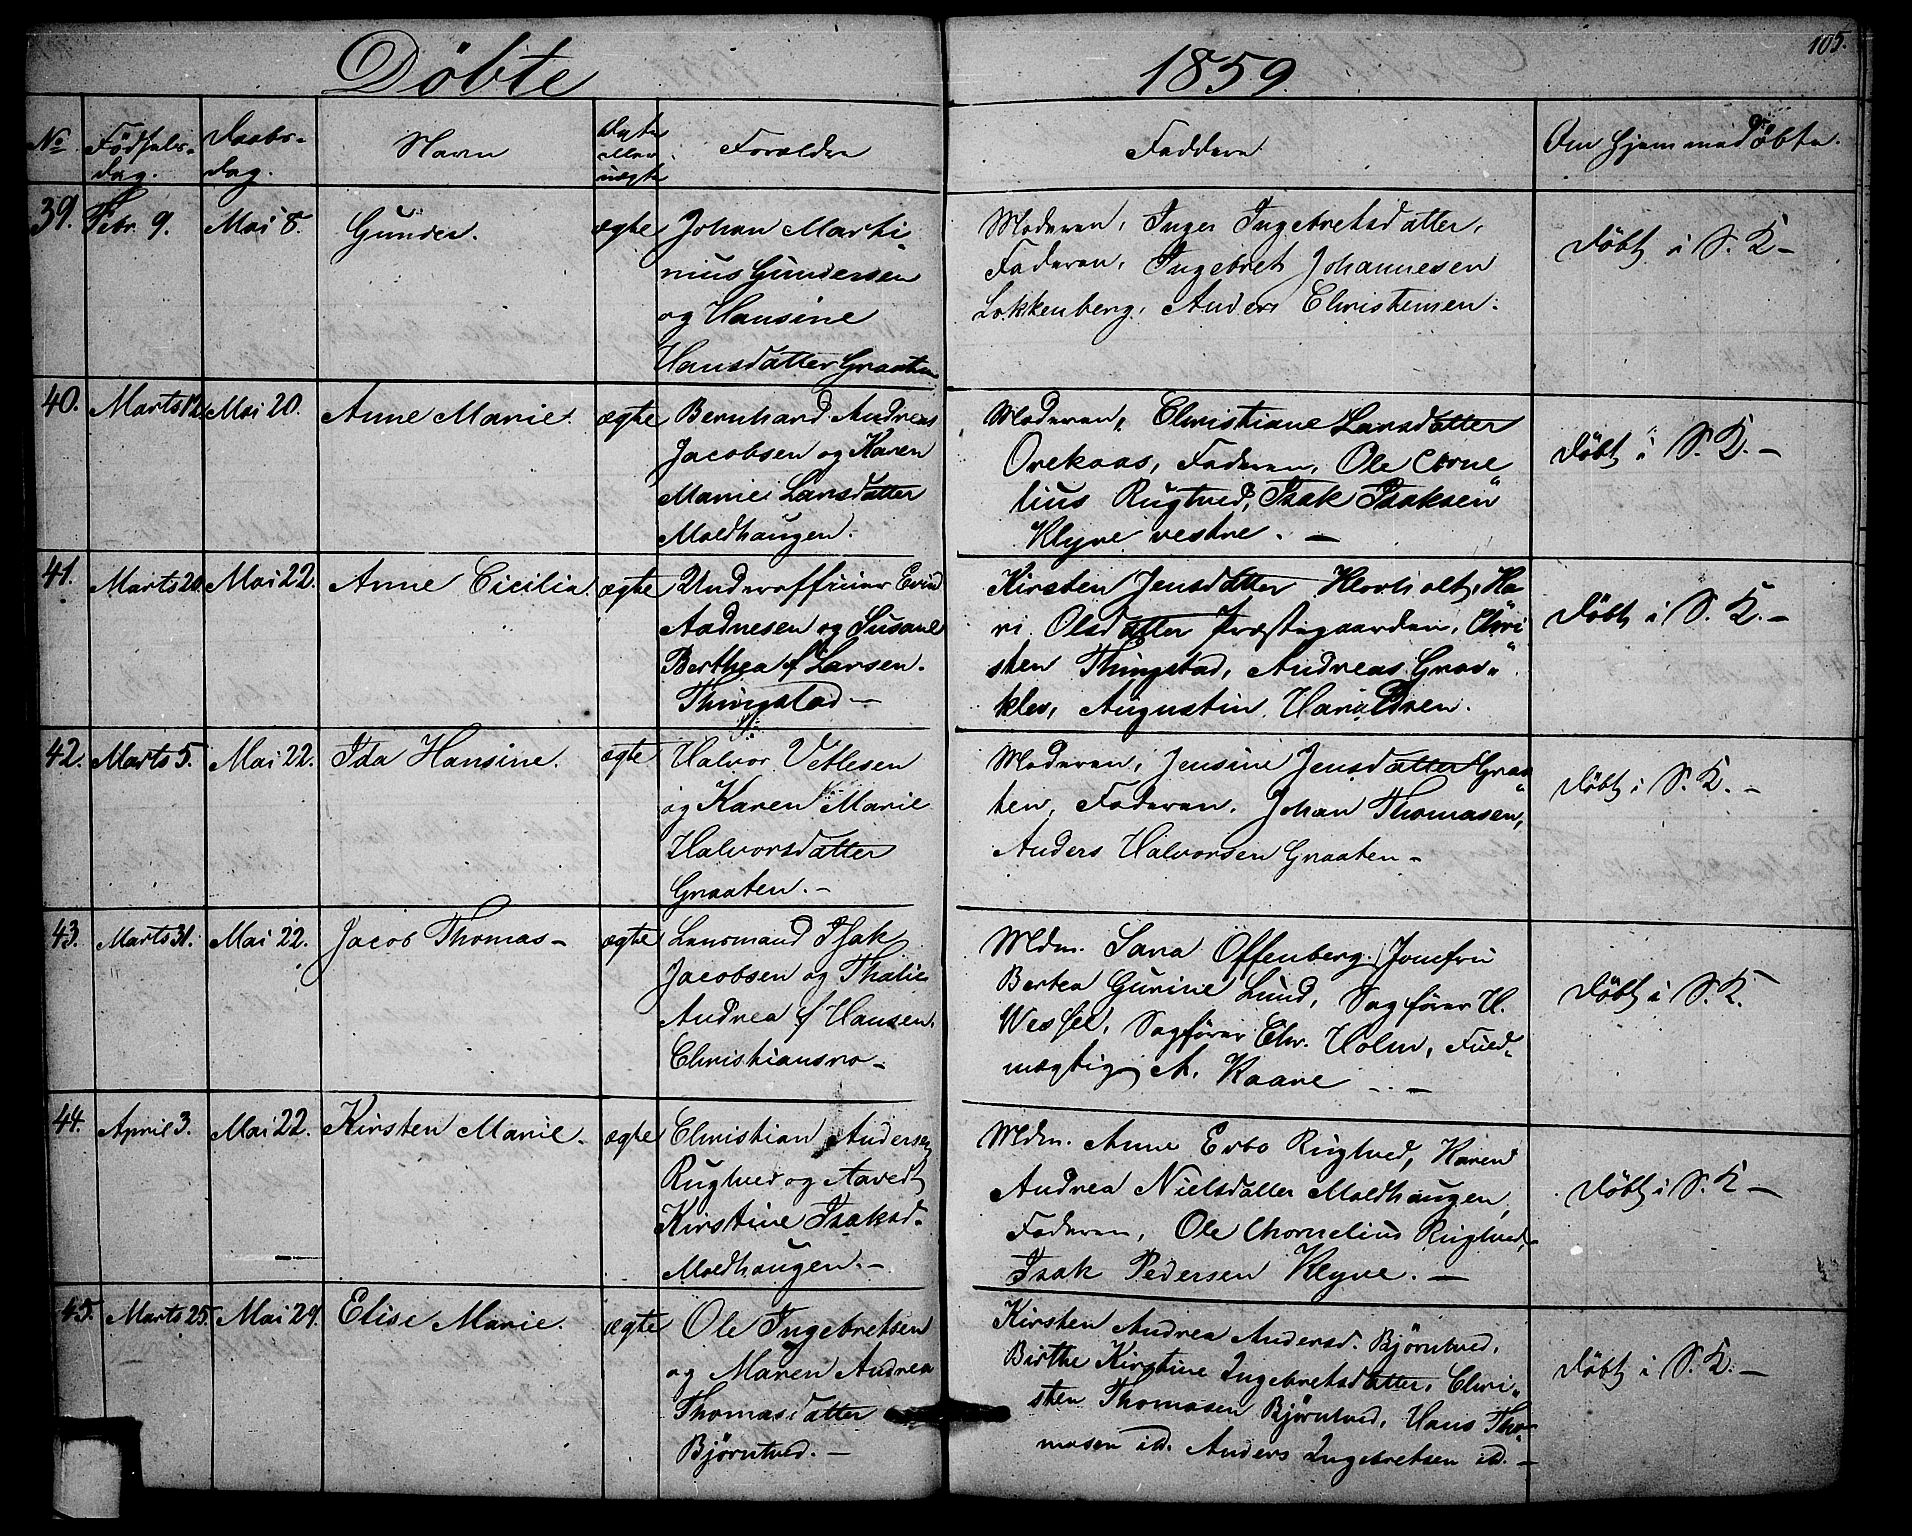 Döbte 1859. 105.
No Födsels-dag. Daabs-dag. Navn Ægte eller uægte Forældre Faddere Om hjemmedöbte.
39. Febr. 9. Mai 8. Gunder. ægte Johan Marti-
nius Gundersen
og Hansine
Hansdatter Graaten
Moderen, Inger Ingebretsdatter,
Faderen, Ingebret Johannesen
Lokkenberg, Anders Christensen.
Döbt i S. K. -
40. Marts 12. Mai 20. Anne Marie. ægte Bernhard Andreas
Jacobsen og Karen
Marie Larsdatter
Moldhaugen.
Moderen, Christiane Larsdatter
Orekaas, Faderen, Ole Corne
lius Rugtved, Isak Isaksen
Klyve vestre. -
Döbt i S. K. -
41. Marts 20. Mai 22. Anne Cicilia. ægte Underofficier Evind
Aadnesen og Susane
Berthea f Larsen.
Thingstad -
Kirsten Jensdatter Hovholt, Ka-
ri Olsdatter Præstegaarden, Chri-
sten Thingstad, Andreas Grav-
klev, Augustin Haraldsen.
Döbt i S. K. -
42. Marts 5. Mai 22. Ida Hansine. ægte Halvor Vetlesen
og Karen Marie
Halvorsdatter
Graaten. -
Moderen, Jensine Jensdatter Graa-
ten, Faderen, Johan Thomasen,
Anders Halvorsen Graaten -
Döbt i S. K. -
43. Marts 31. Mai 22. Jacob Thomas - ægte Lensmand Isak
Jacobsen og Thalie
Andrea f Hansen.
Christiansro -
Mdm. Sara Offenberg, Jomfru
Bertea Gurine Lund, Sagförer H.
Wessel, Sagförer Chr. Holm, Fuld-
mægtig A. Kaare - -
Döbt i S. K.
44. April 3. Mai 22. Kirsten Marie. ægte Christian Andersen
Rugtved og Aavedt
Kirstine Isaksd.
Moldhaugen. -
Mdm. Anne Erbo Rugtved, Karen
Andrea Nielsdatter Moldhaugen,
Faderen, Ole Chornelius Rugtved,
Isak Pedersen Klyve. -
Döbt i S. K -
45. Marts 25. Mai 29. Elise Marie. ægte Ole Ingebretsen
og Maren Andrea
Thomasdatter
Björntved. -
Kirsten Andrea Andersd. Björntved,
Birthe Kirstine Ingebretsdatter, Chri-
sten Thomasen Björntved, Hans Tho-
masen ibd. Anders Ingebretsen ibd. -
Döbt i S. K. -